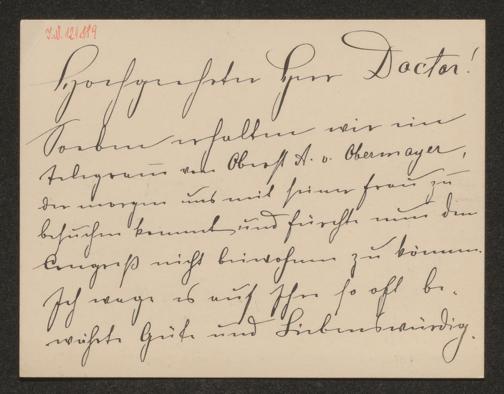 I.N. 121.119
Hochgeehrter Herr Doctor!
Soeben erhalten wir ein
Telegram̅ von Oberst A. v. Obermayer,
der morgen uns mit seiner Frau zu
besuchen kommt und fürchte nun dem
Congreß nicht beiwohnen zu können.
Ich wage es auf Ihre so oft be-
währte Güte und Liebenswürdig